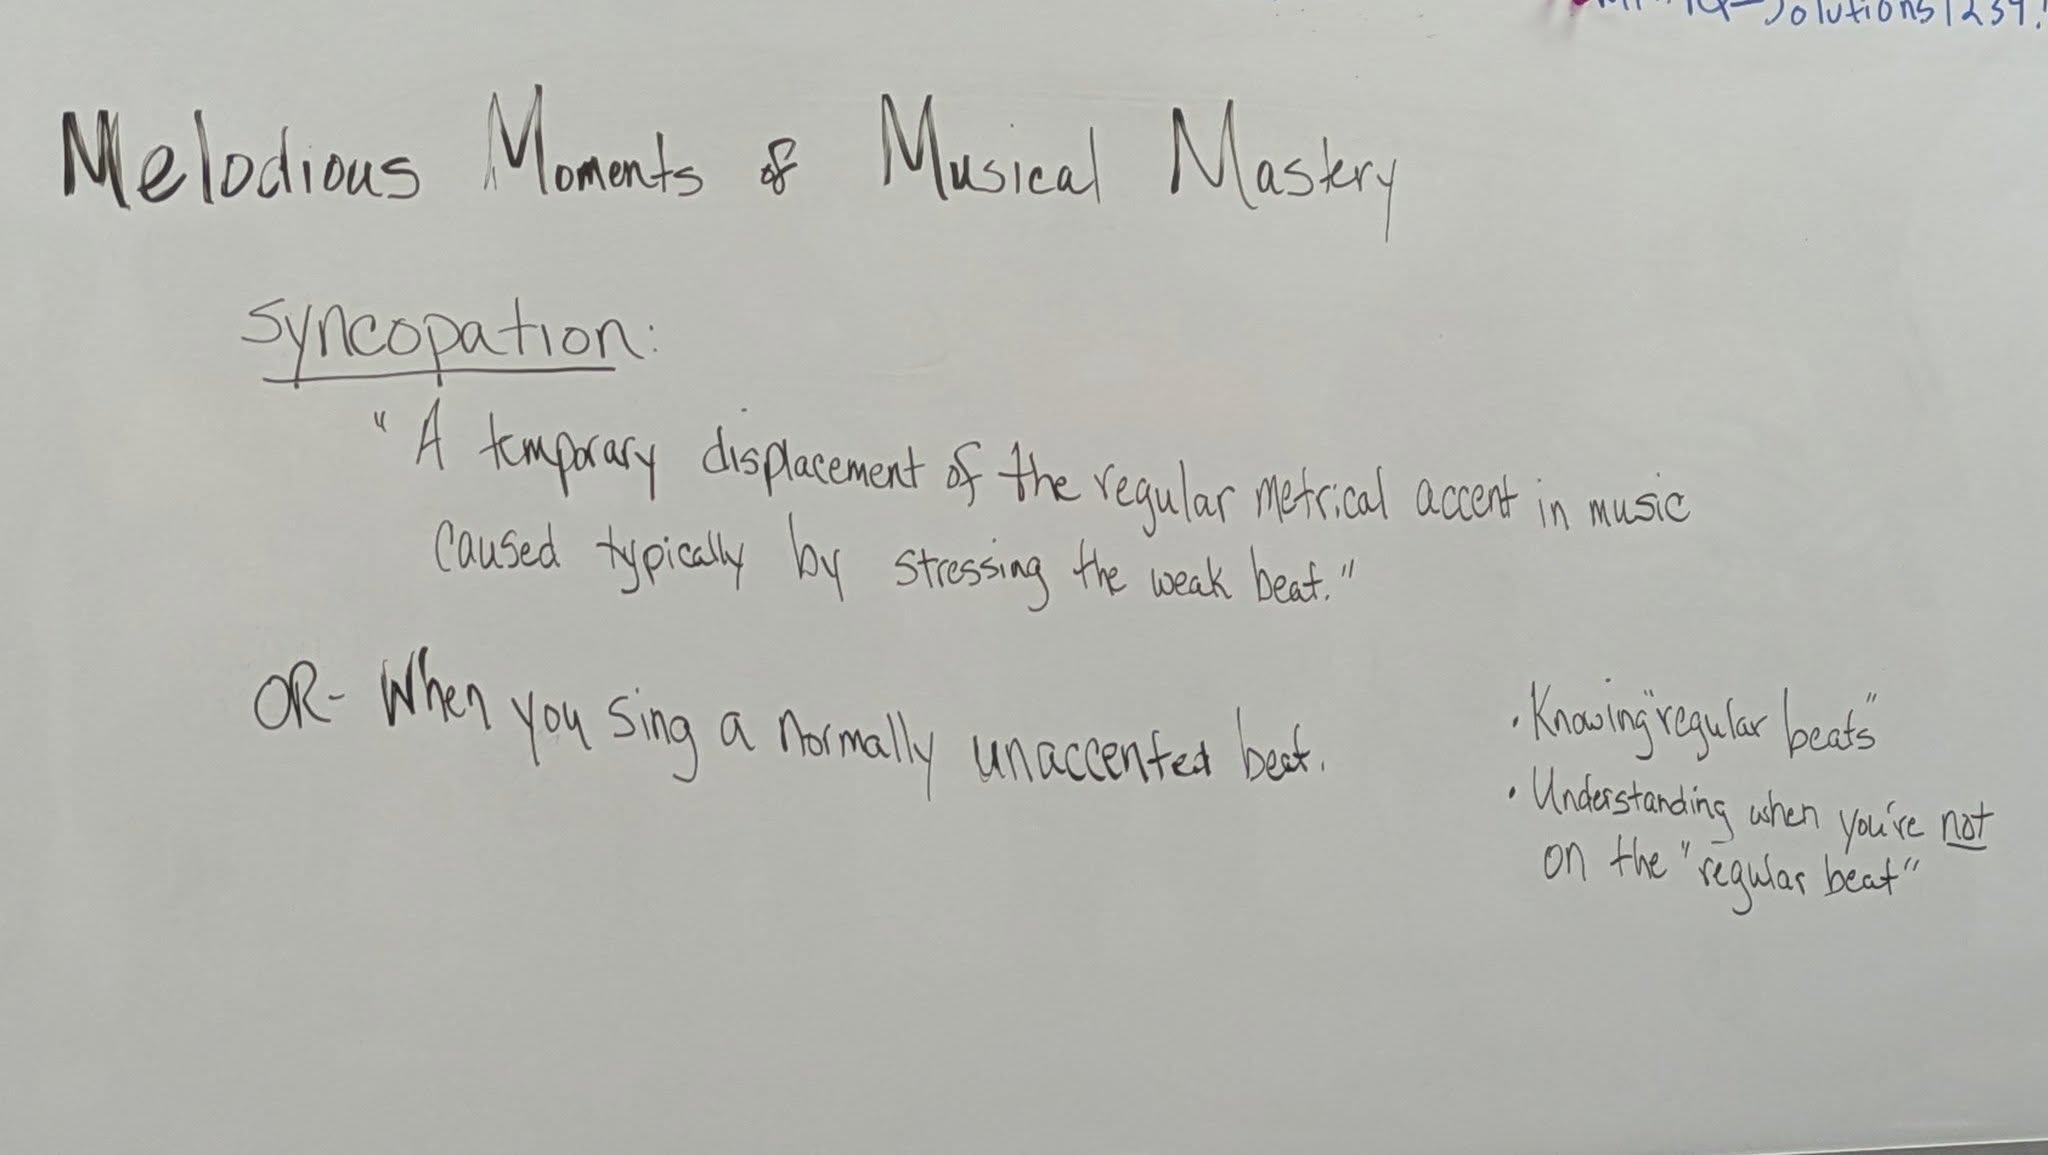 Solutions1234!
Melodious Moments of Musical Mastery
Syncopation:
"A temporary displacement of the regular metrical accent in music
caused typically by stressing the weak beat."
OR- When you sing a normally unaccented beat.
• Knowing "regular beats"
• Understanding when you're not
on the "regular beat"